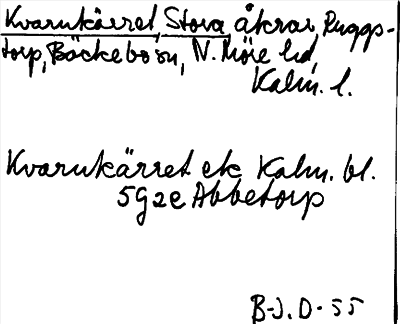 Kvarnkärret, Stora åkrar, Ruggs-
torp, Bäckebo sn, N. Möre hd,
Kalm. l.
Kvarnkärret ek Kalm. bl.
5g2e Abbetorp
B-J. D-55